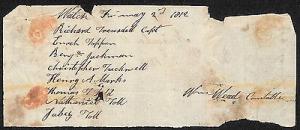 Watch for may 2d 1812
Richard Trousdell Capt
Enoch Toppan
Benj Jackman
Christopher Tuckwell
Henry A. Marks
Thomas Toll
Nathaniel Toll
Jabez Toll
Wood Constable